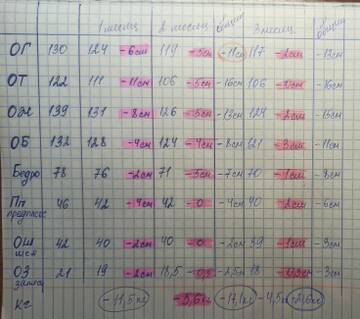 1 месяц 2 месяц общий 3 месяц общий
ОГ 130 124 -6см 119 -5см -11см 117 -2см -13см
ОТ 122 111 -11см 106 -5см -16см 106 -16см
ОЖ 139 131 -8см 126 -5см -13см 124 -2см -15см
ОБ 132 128 -4см 124 -4см -8см 121 -3см -11см
Бедро 78 76 -2см 71 -5см -7см 70 -1см -8см
Пп 46 42 -4см 42 -0 -4см 40 -2см -6см
предплечье
ОШ 42 40 -2см 40 -0 -2см 39 -1см -3см
шея
ОЗ 21 19 -2см 18,5 -0,5 -2,5см 18 -0,5см -3см
кг -11,5кг -5,6кг -17,1кг -4,5кг -21,6кг